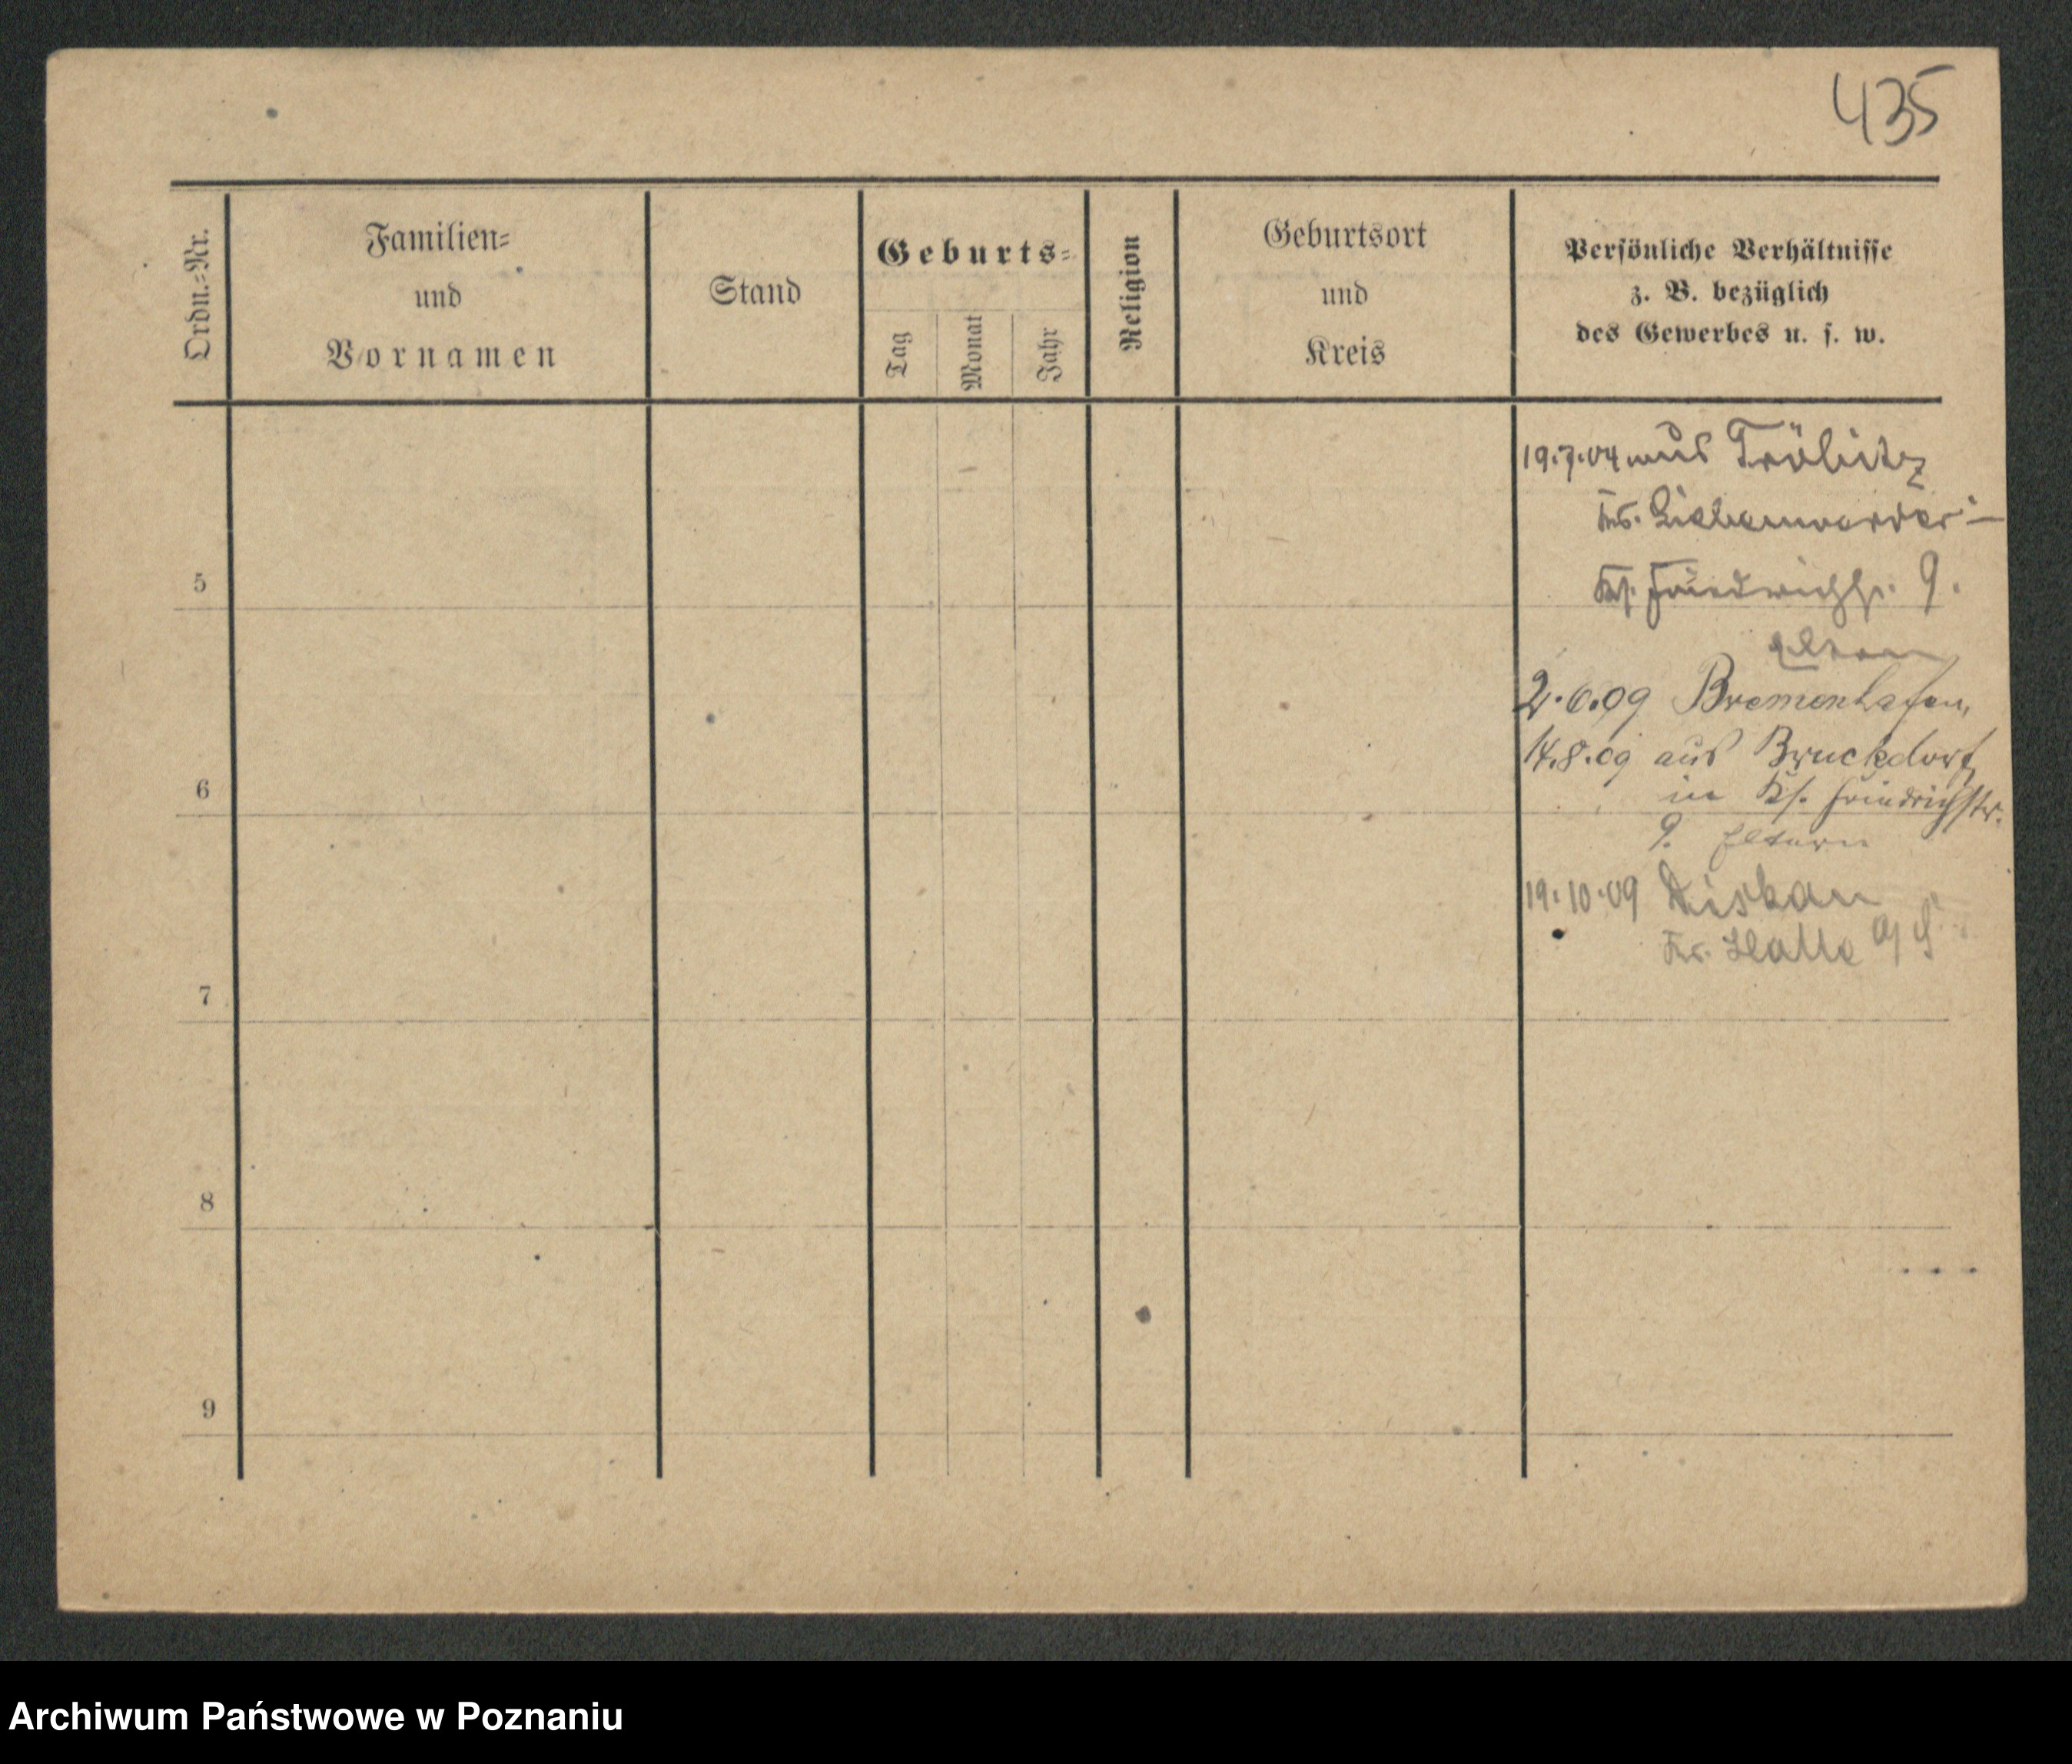 435
Ordn.-Nr.
Familien-
und
Vornamen
Stand
Geburts-
Tag
Monat
Jahr
Religion
Geburtsort
und
Kreis
Persönliche Verhältnisse
z. B. bezüglich
des Gewerbes u. s. w.
19.7.04 aus Tröbitz
Krs. Liebenwerder
5
Friedrichstr. 9.
Eltern
2.6.09 Bremenhafen,
14.8.09 aus Bruckdorf
6
in Friedrichstr.
9. Eltern
19.10.09 Diskau
Kr. Halle a/S
7
8
9
Archiwum Państwowe w Poznaniu